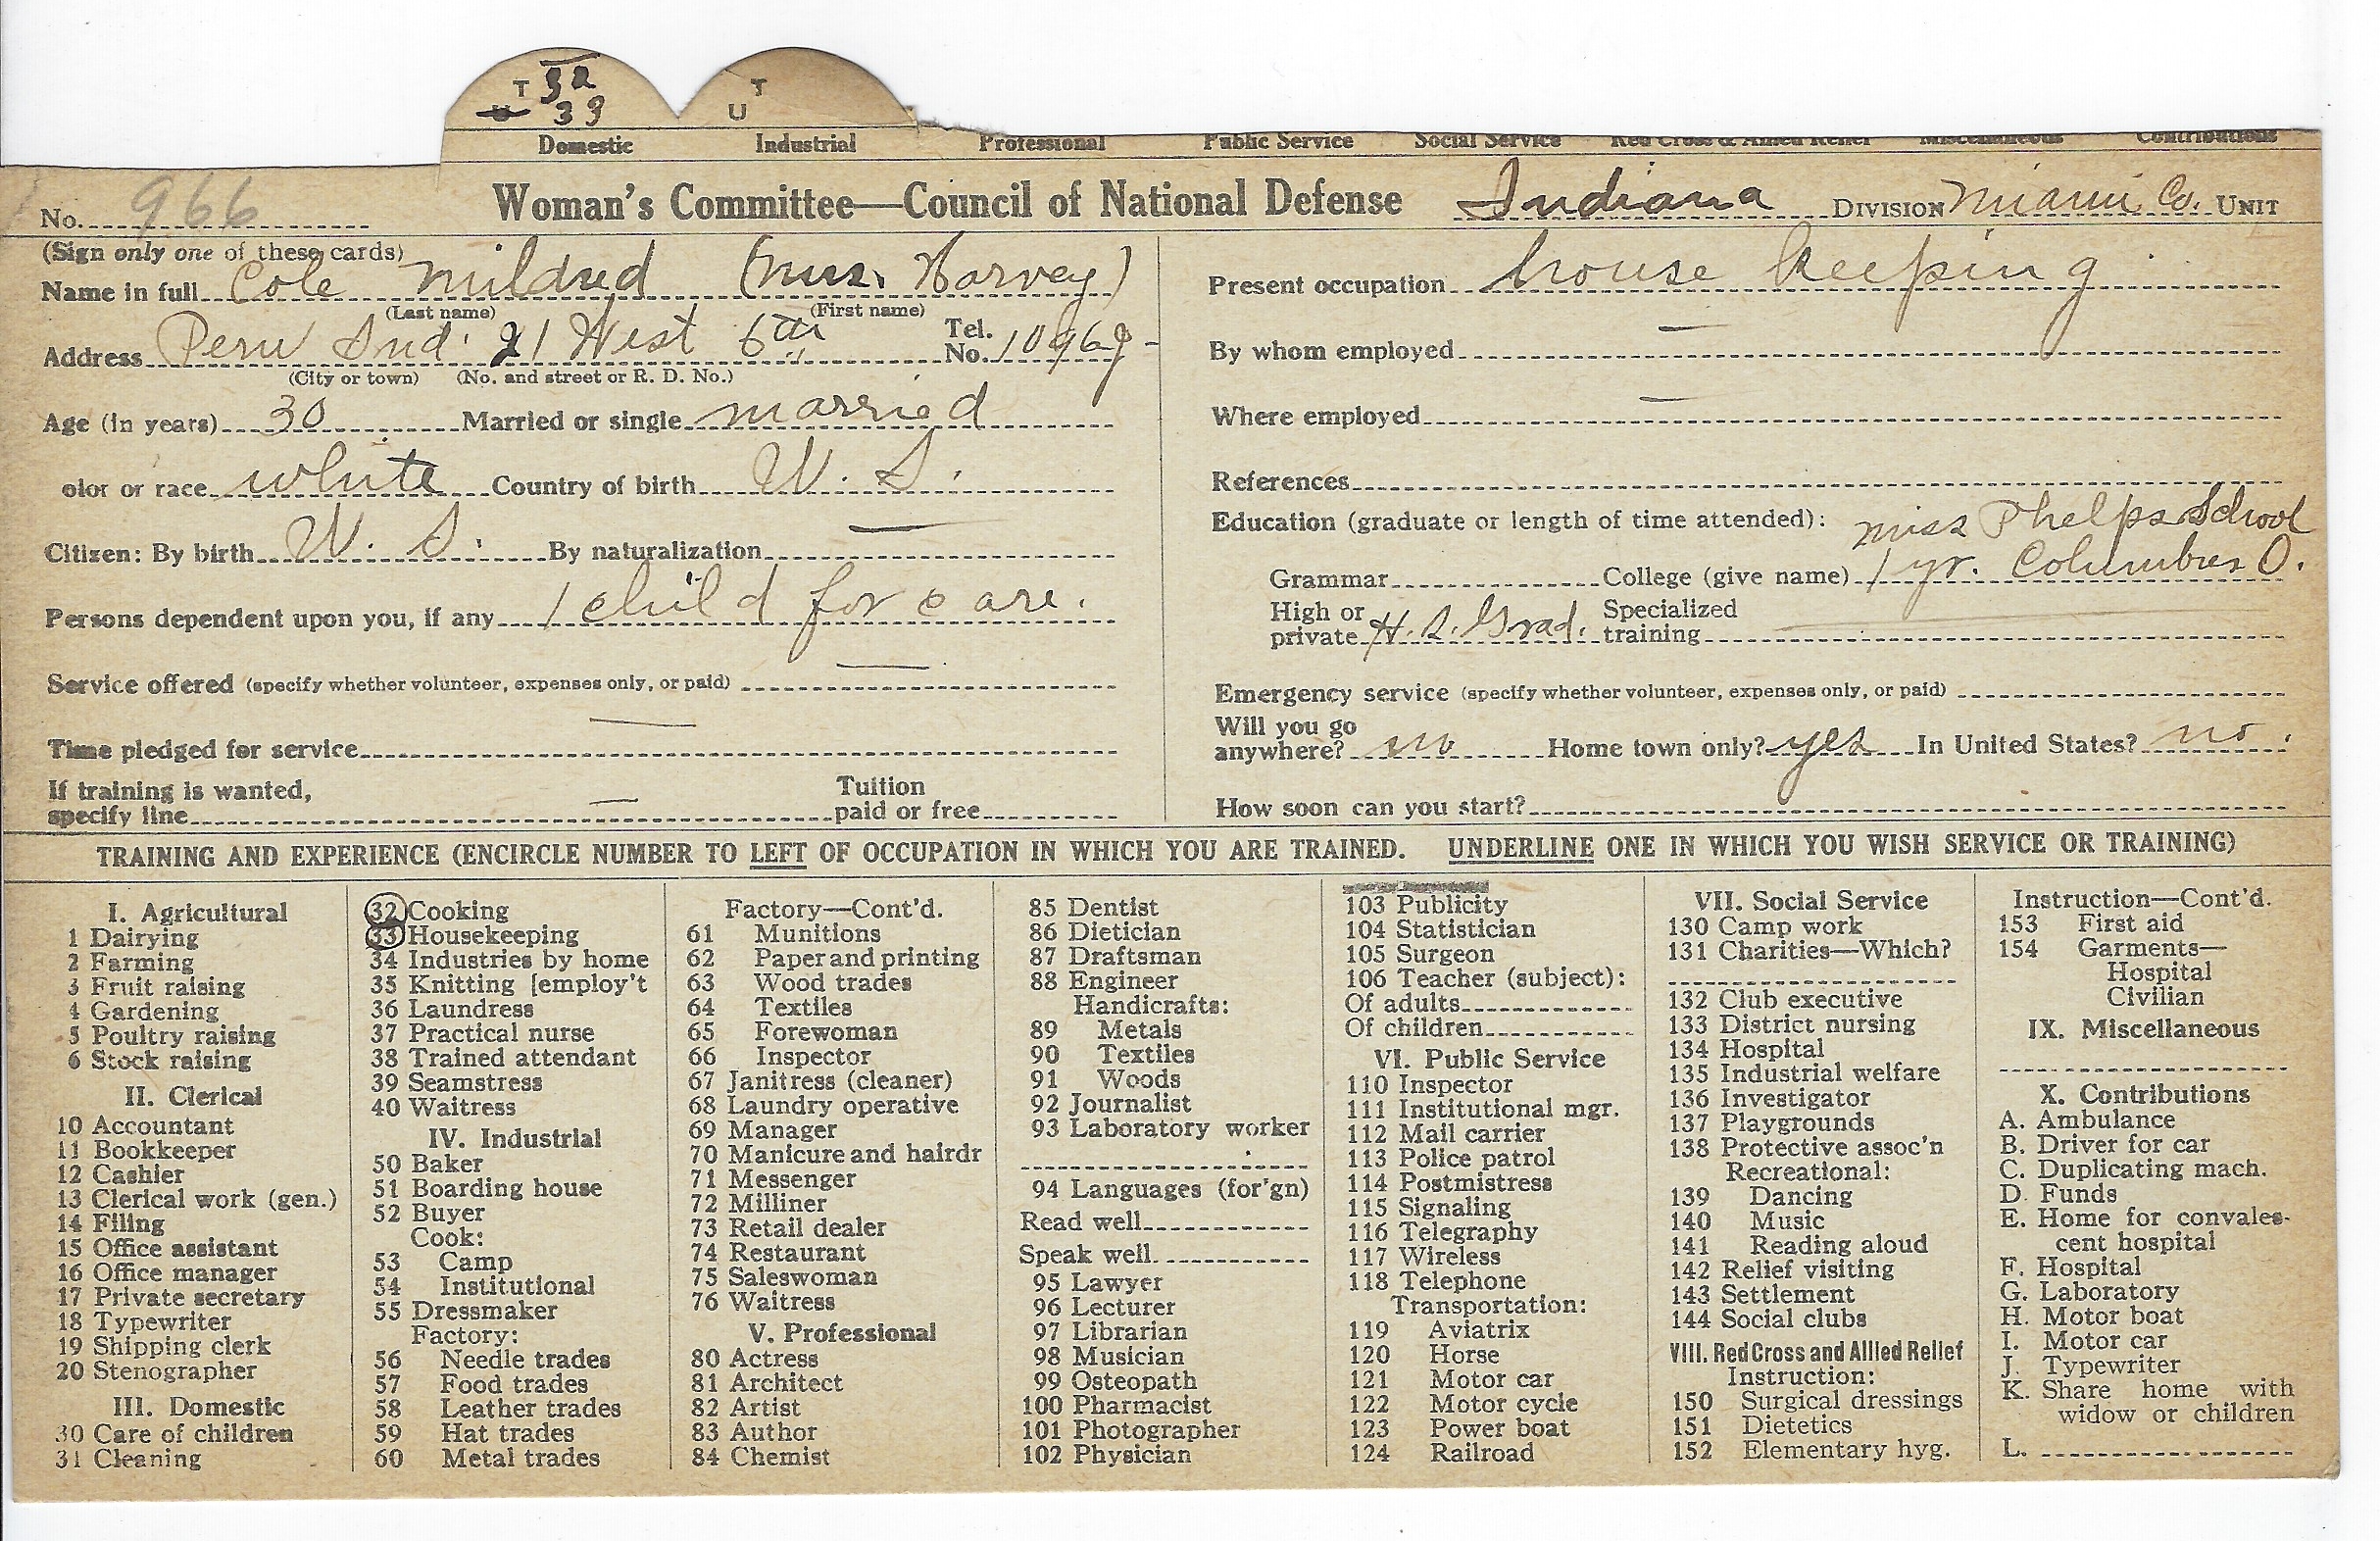 T 32
U 33
T
U
Domestic Industrial Professional Public Service Social Service Red Cross & Allied Relief Miscellaneous Contributions
No. 966 Woman's Committee—Council of National Defense Indiana DIVISION Miami Co. UNIT
(Sign only one of these cards)
Name in full Cole Mildred (Mrs. Harvey)
(Last name) (First name)
Address Peru Ind. 21 West 6th Tel. No. 1096J
(City or town) (No. and street or R. D. No.)
Age (in years) 30 Married or single married
olor or race white Country of birth U. S.
Citizen: By birth U. S. By naturalization —
Persons dependent upon you, if any 1 child for care.
Service offered (specify whether volunteer, expenses only, or paid) —
Time pledged for service —
If training is wanted,
specify line — Tuition paid or free
Present occupation house keeping
By whom employed —
Where employed —
References
Education (graduate or length of time attended): Miss Phelps School
Grammar College (give name) 1 yr. Columbus O.
High or private H. S. Grad. Specialized training —
Emergency service (specify whether volunteer, expenses only, or paid)
Will you go
anywhere? no Home town only? yes In United States? no.
How soon can you start?
TRAINING AND EXPERIENCE (ENCIRCLE NUMBER TO LEFT OF OCCUPATION IN WHICH YOU ARE TRAINED. UNDERLINE ONE IN WHICH YOU WISH SERVICE OR TRAINING)
I. Agricultural
1 Dairying
2 Farming
3 Fruit raising
4 Gardening
5 Poultry raising
6 Stock raising
II. Clerical
10 Accountant
11 Bookkeeper
12 Cashier
13 Clerical work (gen.)
14 Filing
15 Office assistant
16 Office manager
17 Private secretary
18 Typewriter
19 Shipping clerk
20 Stenographer
III. Domestic
30 Care of children
31 Cleaning
32 Cooking
33 Housekeeping
34 Industries by home
35 Knitting [employ't
36 Laundress
37 Practical nurse
38 Trained attendant
39 Seamstress
40 Waitress
IV. Industrial
50 Baker
51 Boarding house
52 Buyer
Cook:
53 Camp
54 Institutional
55 Dressmaker
Factory:
56 Needle trades
57 Food trades
58 Leather trades
59 Hat trades
60 Metal trades
Factory—Cont'd.
61 Munitions
62 Paper and printing
63 Wood trades
64 Textiles
65 Forewoman
66 Inspector
67 Janitress (cleaner)
68 Laundry operative
69 Manager
70 Manicure and hairdr
71 Messenger
72 Milliner
73 Retail dealer
74 Restaurant
75 Saleswoman
76 Waitress
V. Professional
80 Actress
81 Architect
82 Artist
83 Author
84 Chemist
85 Dentist
86 Dietician
87 Draftsman
88 Engineer
Handicrafts:
89 Metals
90 Textiles
91 Woods
92 Journalist
93 Laboratory worker
94 Languages (for'gn)
Read well
Speak well
95 Lawyer
96 Lecturer
97 Librarian
98 Musician
99 Osteopath
100 Pharmacist
101 Photographer
102 Physician
103 Publicity
104 Statistician
105 Surgeon
106 Teacher (subject):
Of adults
Of children
VI. Public Service
110 Inspector
111 Institutional mgr.
112 Mail carrier
113 Police patrol
114 Postmistress
115 Signaling
116 Telegraphy
117 Wireless
118 Telephone
Transportation:
119 Aviatrix
120 Horse
121 Motor car
122 Motor cycle
123 Power boat
124 Railroad
VII. Social Service
130 Camp work
131 Charities—Which?
132 Club executive
133 District nursing
134 Hospital
135 Industrial welfare
136 Investigator
137 Playgrounds
138 Protective assoc'n
Recreational:
139 Dancing
140 Music
141 Reading aloud
142 Relief visiting
143 Settlement
144 Social clubs
VIII. Red Cross and Allied Relief
Instruction:
150 Surgical dressings
151 Dietetics
152 Elementary hyg.
Instruction—Cont'd.
153 First aid
154 Garments—
Hospital
Civilian
IX. Miscellaneous
X. Contributions
A. Ambulance
B. Driver for car
C. Duplicating mach.
D. Funds
E. Home for convales-
cent hospital
F. Hospital
G. Laboratory
H. Motor boat
I. Motor car
J. Typewriter
K. Share home with
widow or children
L.